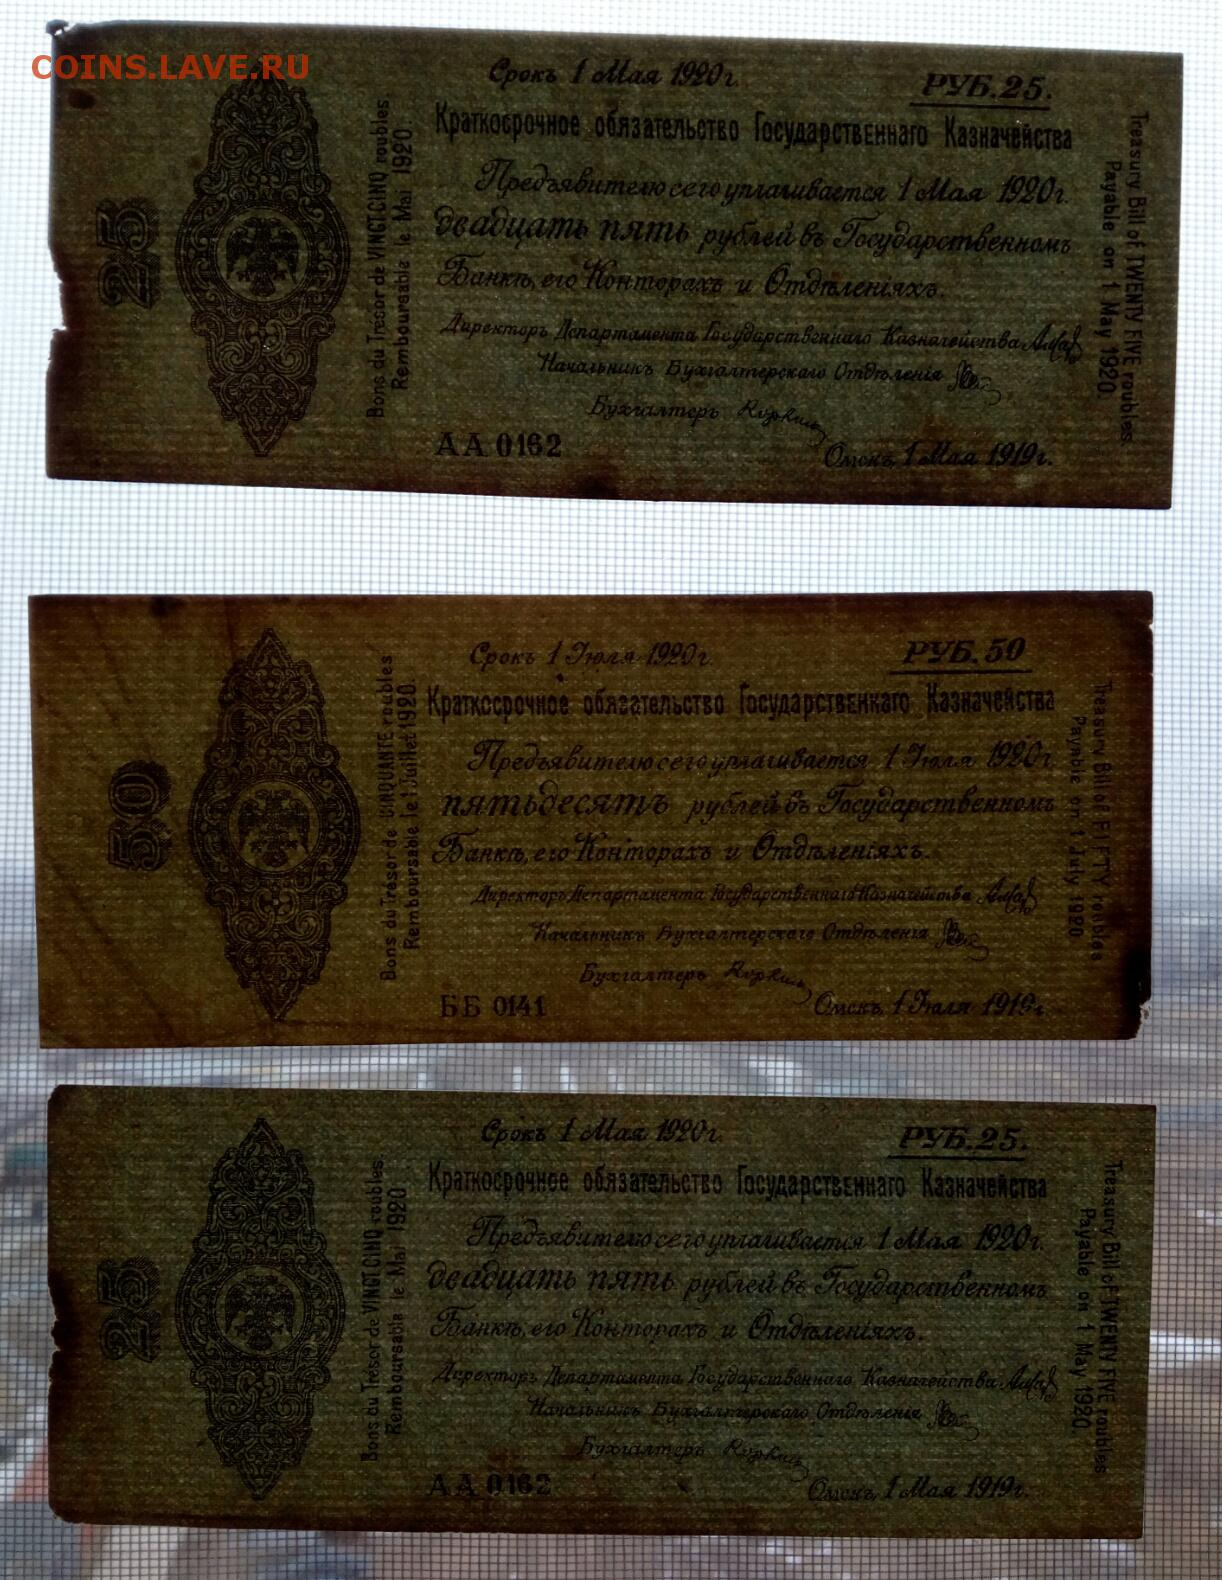 COINS.LAVE.RU
25
Bons du Trésor de VINGT CINQ roubles.
Remboursable le Mai 1920.
Срокъ 1 Мая 1920 г.
РУБ. 25.
Краткосрочное обязательство Государственнаго Казначейства
Предъявителю сего уплачивается 1 Мая 1920 г.
двадцать пять рублей въ Государственномъ
Банкѣ, его Конторахъ и Отдѣленіяхъ.
Директоръ Департамента Государственнаго Казначейства
Начальникъ Бухгалтерскаго Отдѣленія
Бухгалтеръ
АА 0162
Омскъ, 1 Мая 1919 г.
Treasury Bill of TWENTY FIVE roubles.
Payable on 1 May 1920.
50
Bons du Trésor de CINQUANTE roubles
Remboursable le 1 Juillet 1920.
Срокъ 1 Іюля 1920 г.
РУБ. 50
Краткосрочное обязательство Государственнаго Казначейства
Предъявителю сего уплачивается 1 Іюля 1920 г
пятьдесятъ рублей въ Государственномъ
Банкѣ, его Конторахъ и Отдѣленіяхъ.
Директоръ Департамента Государственнаго Казначейства
Начальникъ Бухгалтерскаго Отдѣленія
Бухгалтеръ
ББ 0141
Омскъ, 1 Іюля 1919 г.
Treasury Bill of FIFTY roubles
Payable on 1 July 1920
25
Bons du Trésor de VINGT CINQ roubles.
Remboursable le Mai 1920
Срокъ 1 Мая 1920 г.
РУБ. 25.
Краткосрочное обязательство Государственнаго Казначейства
Предъявителю сего уплачивается 1 Мая 1920 г.
двадцать пять рублей въ Государственномъ
Банкѣ, его Конторахъ и Отдѣленіяхъ.
Директоръ Департамента Государственнаго Казначейства
Начальникъ Бухгалтерскаго Отдѣленія
Бухгалтеръ
АА 0162
Омскъ, 1 Мая 1919 г.
Treasury Bill of TWENTY FIVE roubles
Payable on 1 May 1920.